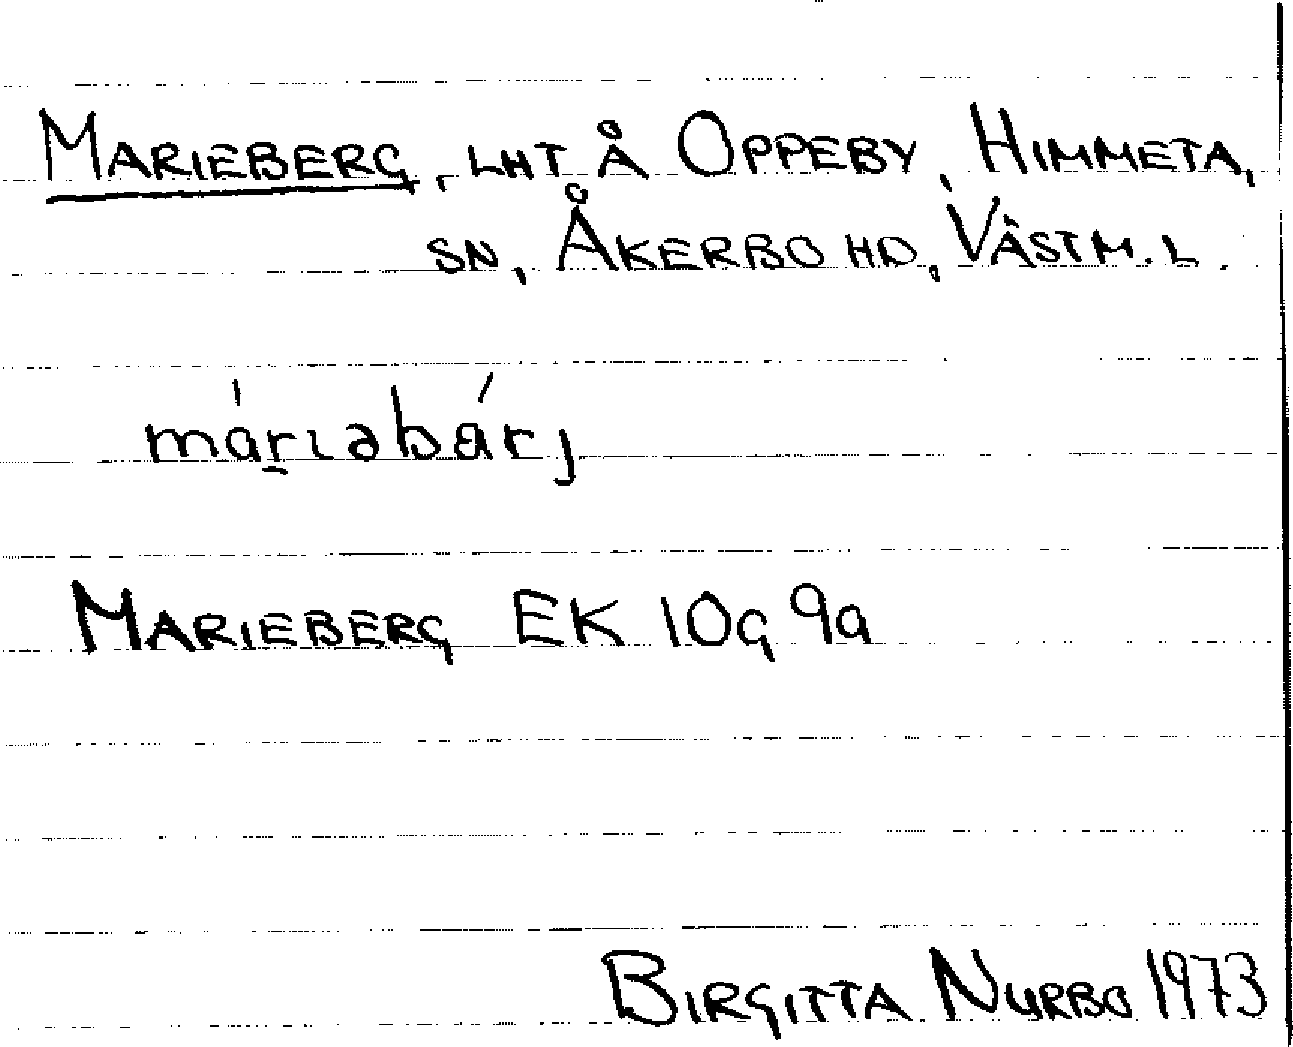 MARIEBERG, LHT Å OPPEBY, HIMMETA,
SN, ÅKERBO HD, VÄSTM. L.
mári̱əbárj
MARIEBERG EK 10G 9a
BIRGITTA NURBO 1973